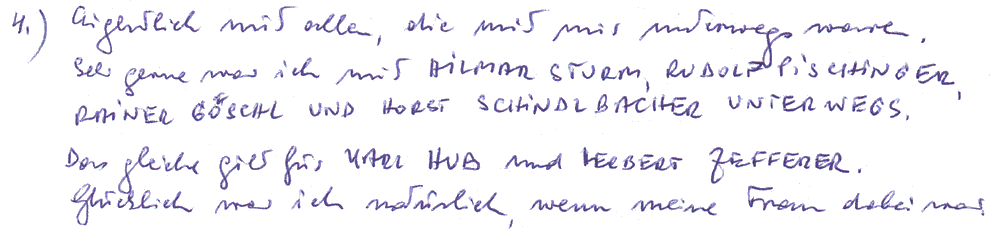 4.) Eigentlich mit allen, die mit mir unterwegs waren.
Sehr gerne war ich mit HILMAR STURM, RUDOLF PISCHINGER,
RAINER GÖSCHL UND HORST SCHINDLBACHER UNTERWEGS.
Das gleiche gilt für KARL HUB und HERBERT ZEFFERER.
Glücklich war ich natürlich, wenn meine Frau dabei war.